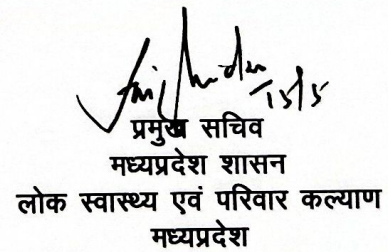 15/5
प्रमुख सचिव
मध्यप्रदेश शासन
लोक स्वास्थ्य एवं परिवार कल्याण
मध्यप्रदेश